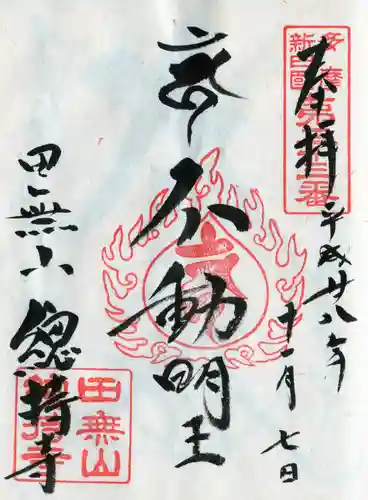 奉拝
平成廿八年
十一月七日
不動明王
田無山
總持寺
多摩
新四國
田無山